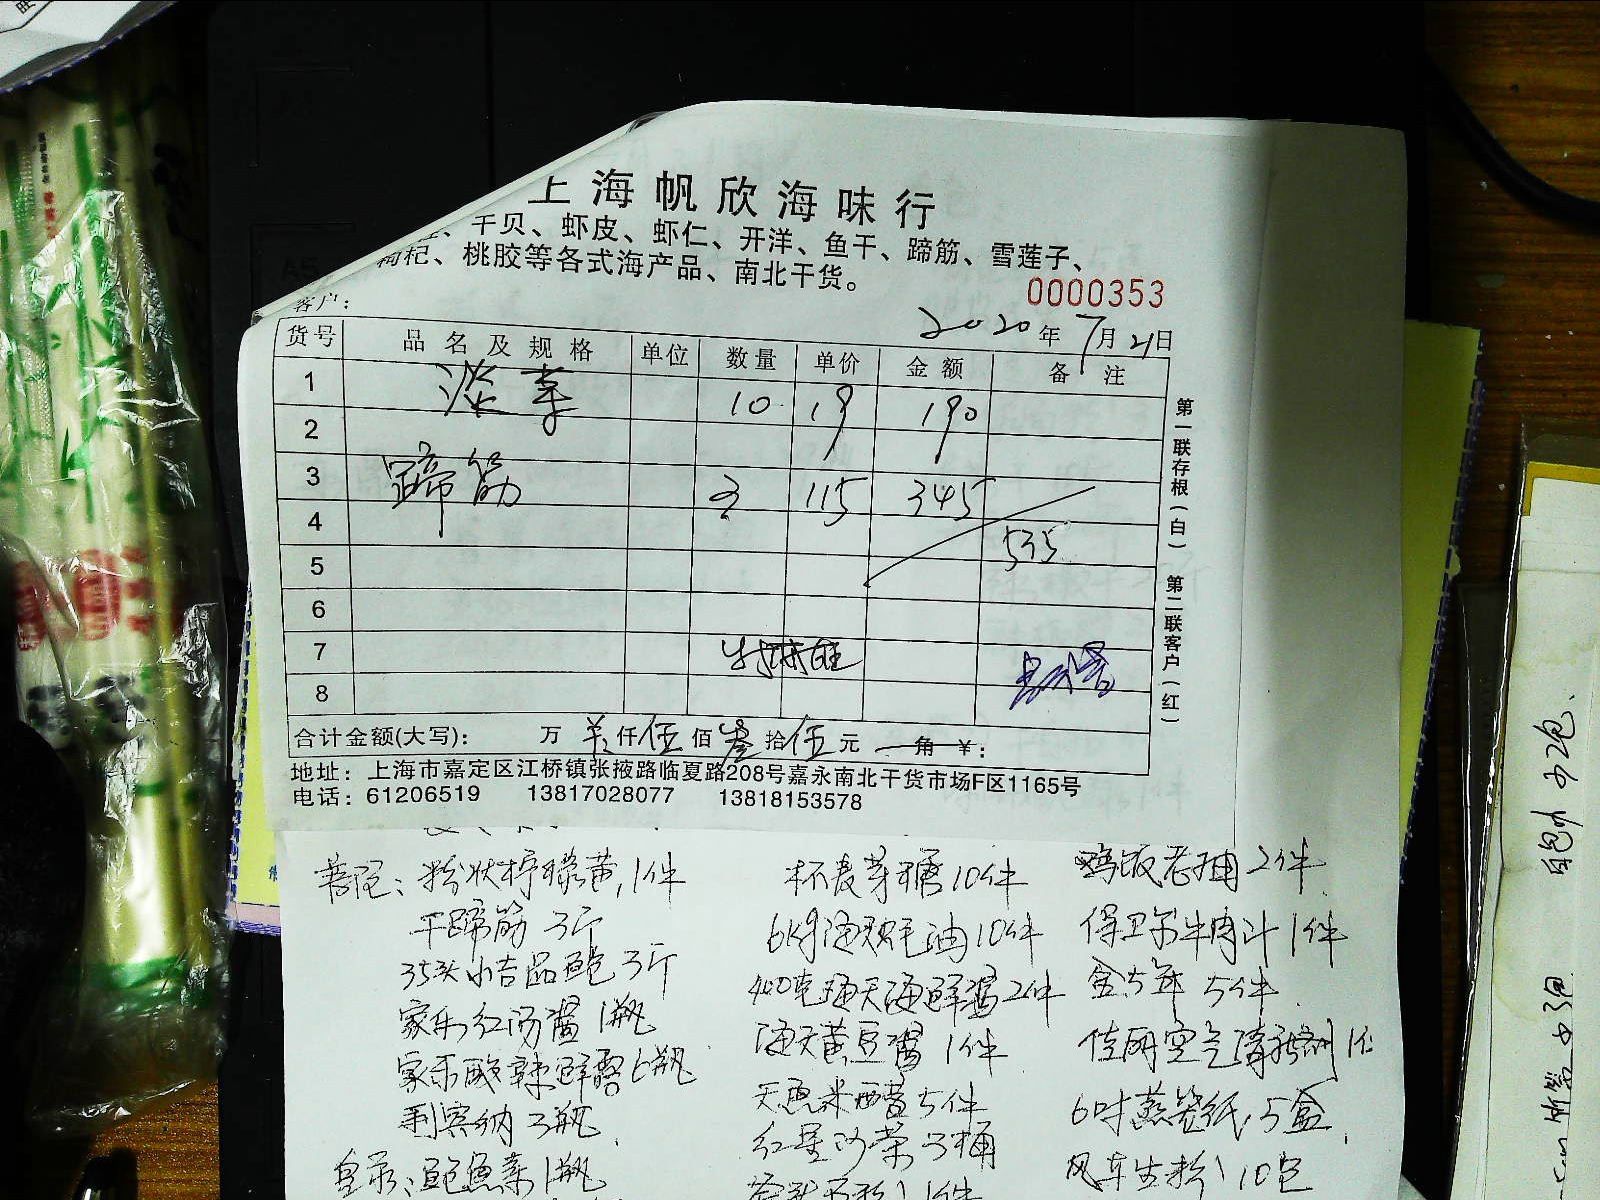 上海帆欣海味行
、干贝、虾皮、虾仁、开洋、鱼干、蹄筋、雪莲子、
枸杞、桃胶等各式海产品、南北干货。
0000353
客户:
2020年7月21日
货号 品名及规格 单位 数量 单价 金额 备注
1 淡菜 10 19 190
2
3 蹄筋 3 115 345
4 535
5
6
7
8
第一联存根(白) 第二联客户(红)
合计金额(大写): 万 仟伍佰叁拾伍元 角 ¥:
地址: 上海市嘉定区江桥镇张掖路临夏路208号嘉永南北干货市场F区1165号
电话: 61206519 13817028077 13818153578
粉状柠檬黄,1件
干蹄筋 3斤
35头小吉品鲍 3斤
家乐红汤酱 1瓶
家乐酸辣鲜露 6瓶
利宾纳 3瓶
鲍鱼素 1瓶
杯麦芽糖 10件
6kg海天蚝油 10件
400克海天海鲜酱 2件
海天黄豆酱 1件
天鱼米醋 5件
红星 3桶
鸡饭老抽 2件
牛肉汁 1件
金5年 5件
佳丽空气清新剂 1
6吋蒸笼纸 5盒
风车生粉 10包